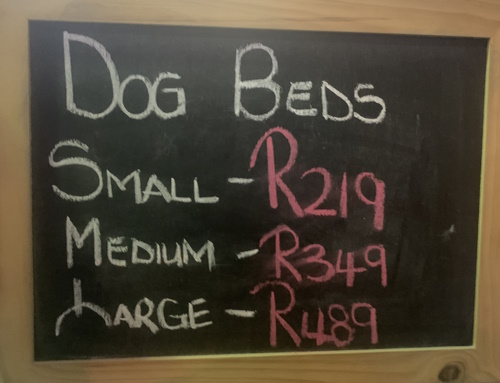 DOG BEDS
SMALL - R219
MEDIUM - R349
LARGE - R489